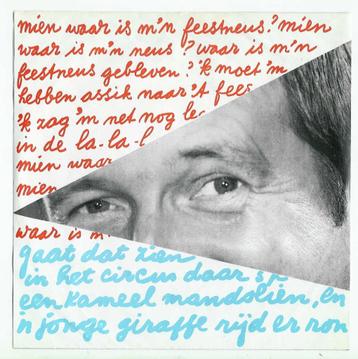 mien waar is m'n feestneus? mien
waar is m'n neus? waar is m'n
feestneus gebleven? 'k moet 'm
hebben assik naar 't fees
'k zag 'm net nog leg
in de la-la-l
mien waar
mien
waar is m'
gaat dat zien,
in het circus daar sp
een kameel mandolien, en
'n jonge giraffe rijd er ron